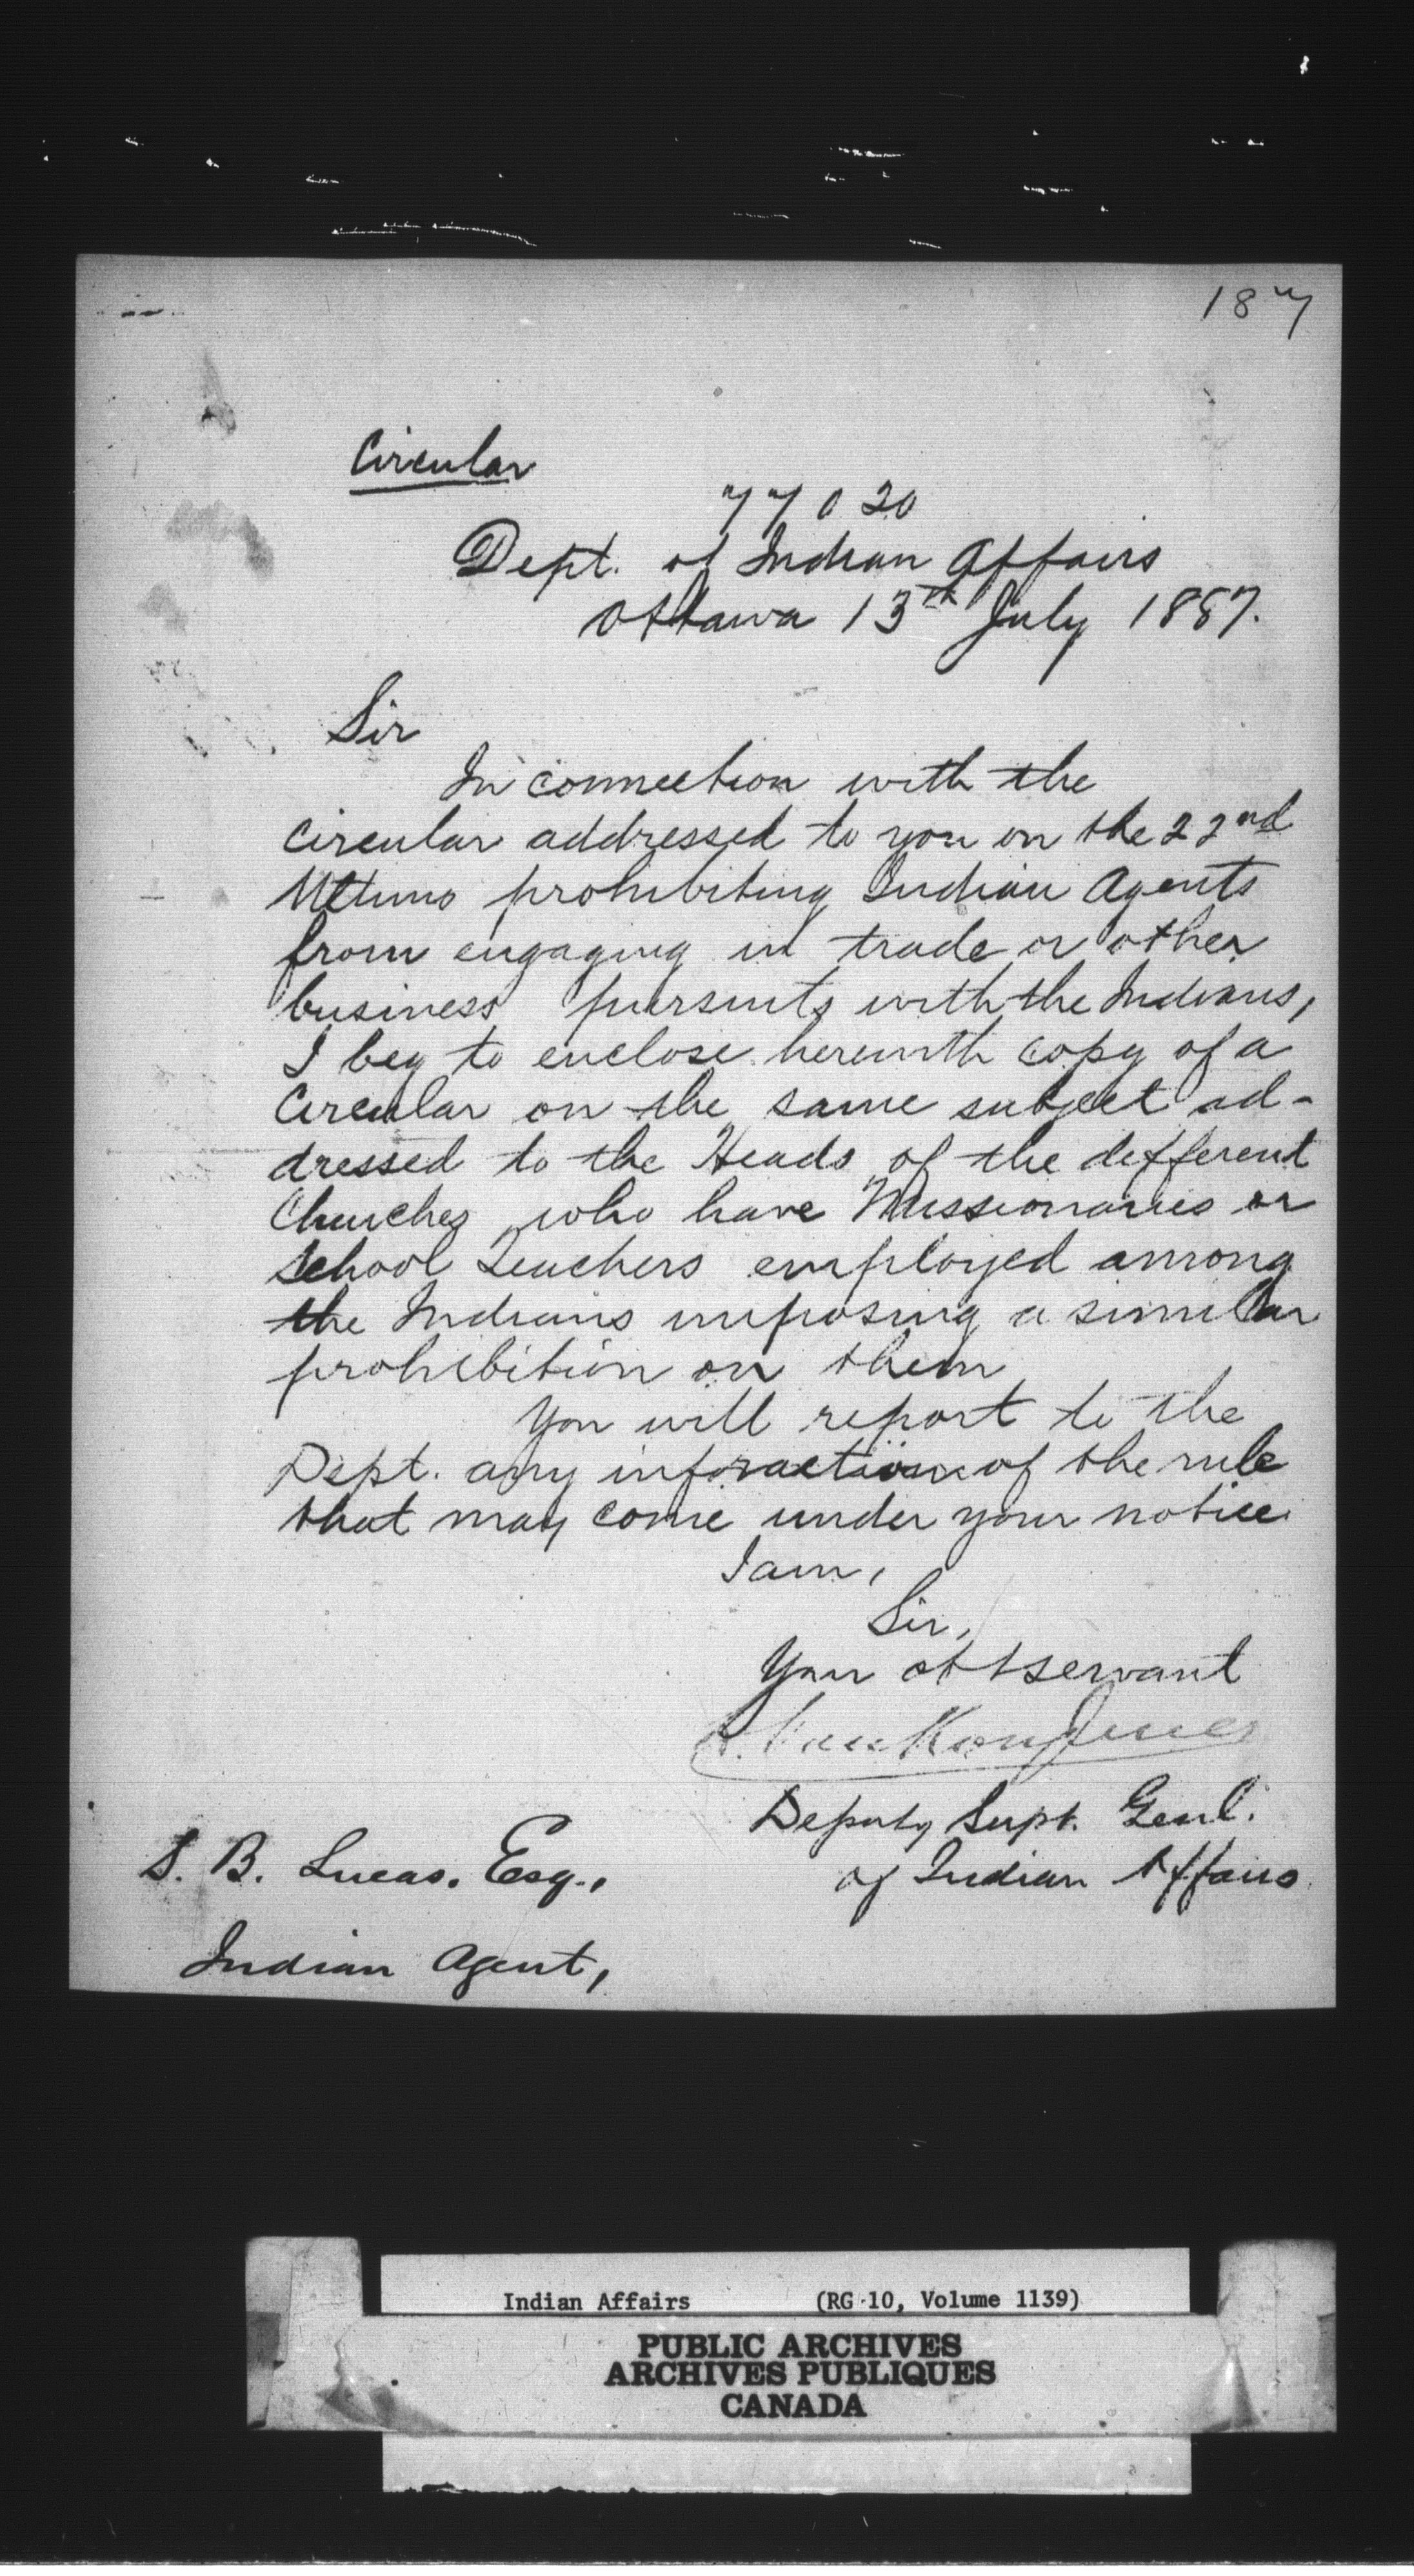 187
Circular
77020
Dept. of Indian Affairs
Ottawa 13th July 1887.
Sir
In connection with the
circular addressed to you on the 22nd
Ultimo prohibiting Indian Agents
from engaging in trade or other
business pursuits with the Indians,
I beg to enclose herewith copy of a
Circular on the same subject ad-
dressed to the Heads of the different
Churches who have Missionaries or
School Teachers employed among
the Indians imposing a similar
prohibition on them
You will report to the
Dept. any infraction of the rule
that may come under your notice
I am,
Sir,
Your obt servant
L. VanKoughnet
Deputy Supt. Genl.
of Indian Affairs
S. B. Lucas, Esq.,
Indian Agent,
Indian Affairs (RG 10, Volume 1139)
PUBLIC ARCHIVES
ARCHIVES PUBLIQUES
CANADA